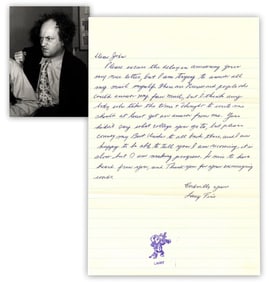 Dear John
Please excuse the delay in answering your
very nice letter, but I am trying to answer all
my mail myself. There are friends and people who
could answer my fan mail, but I think any-
body who takes the time & thought to write me
should at least get an answer from me. You
didn't say what college you go to, but please
convey my Best Wishes to all back there, and am
happy to be able to tell you I am recovering, it is
slow but I am making progress. So nice to have
heard from you, and Thank you for your encouraging
words.
Cordially yours
Larry Fine
LARRY